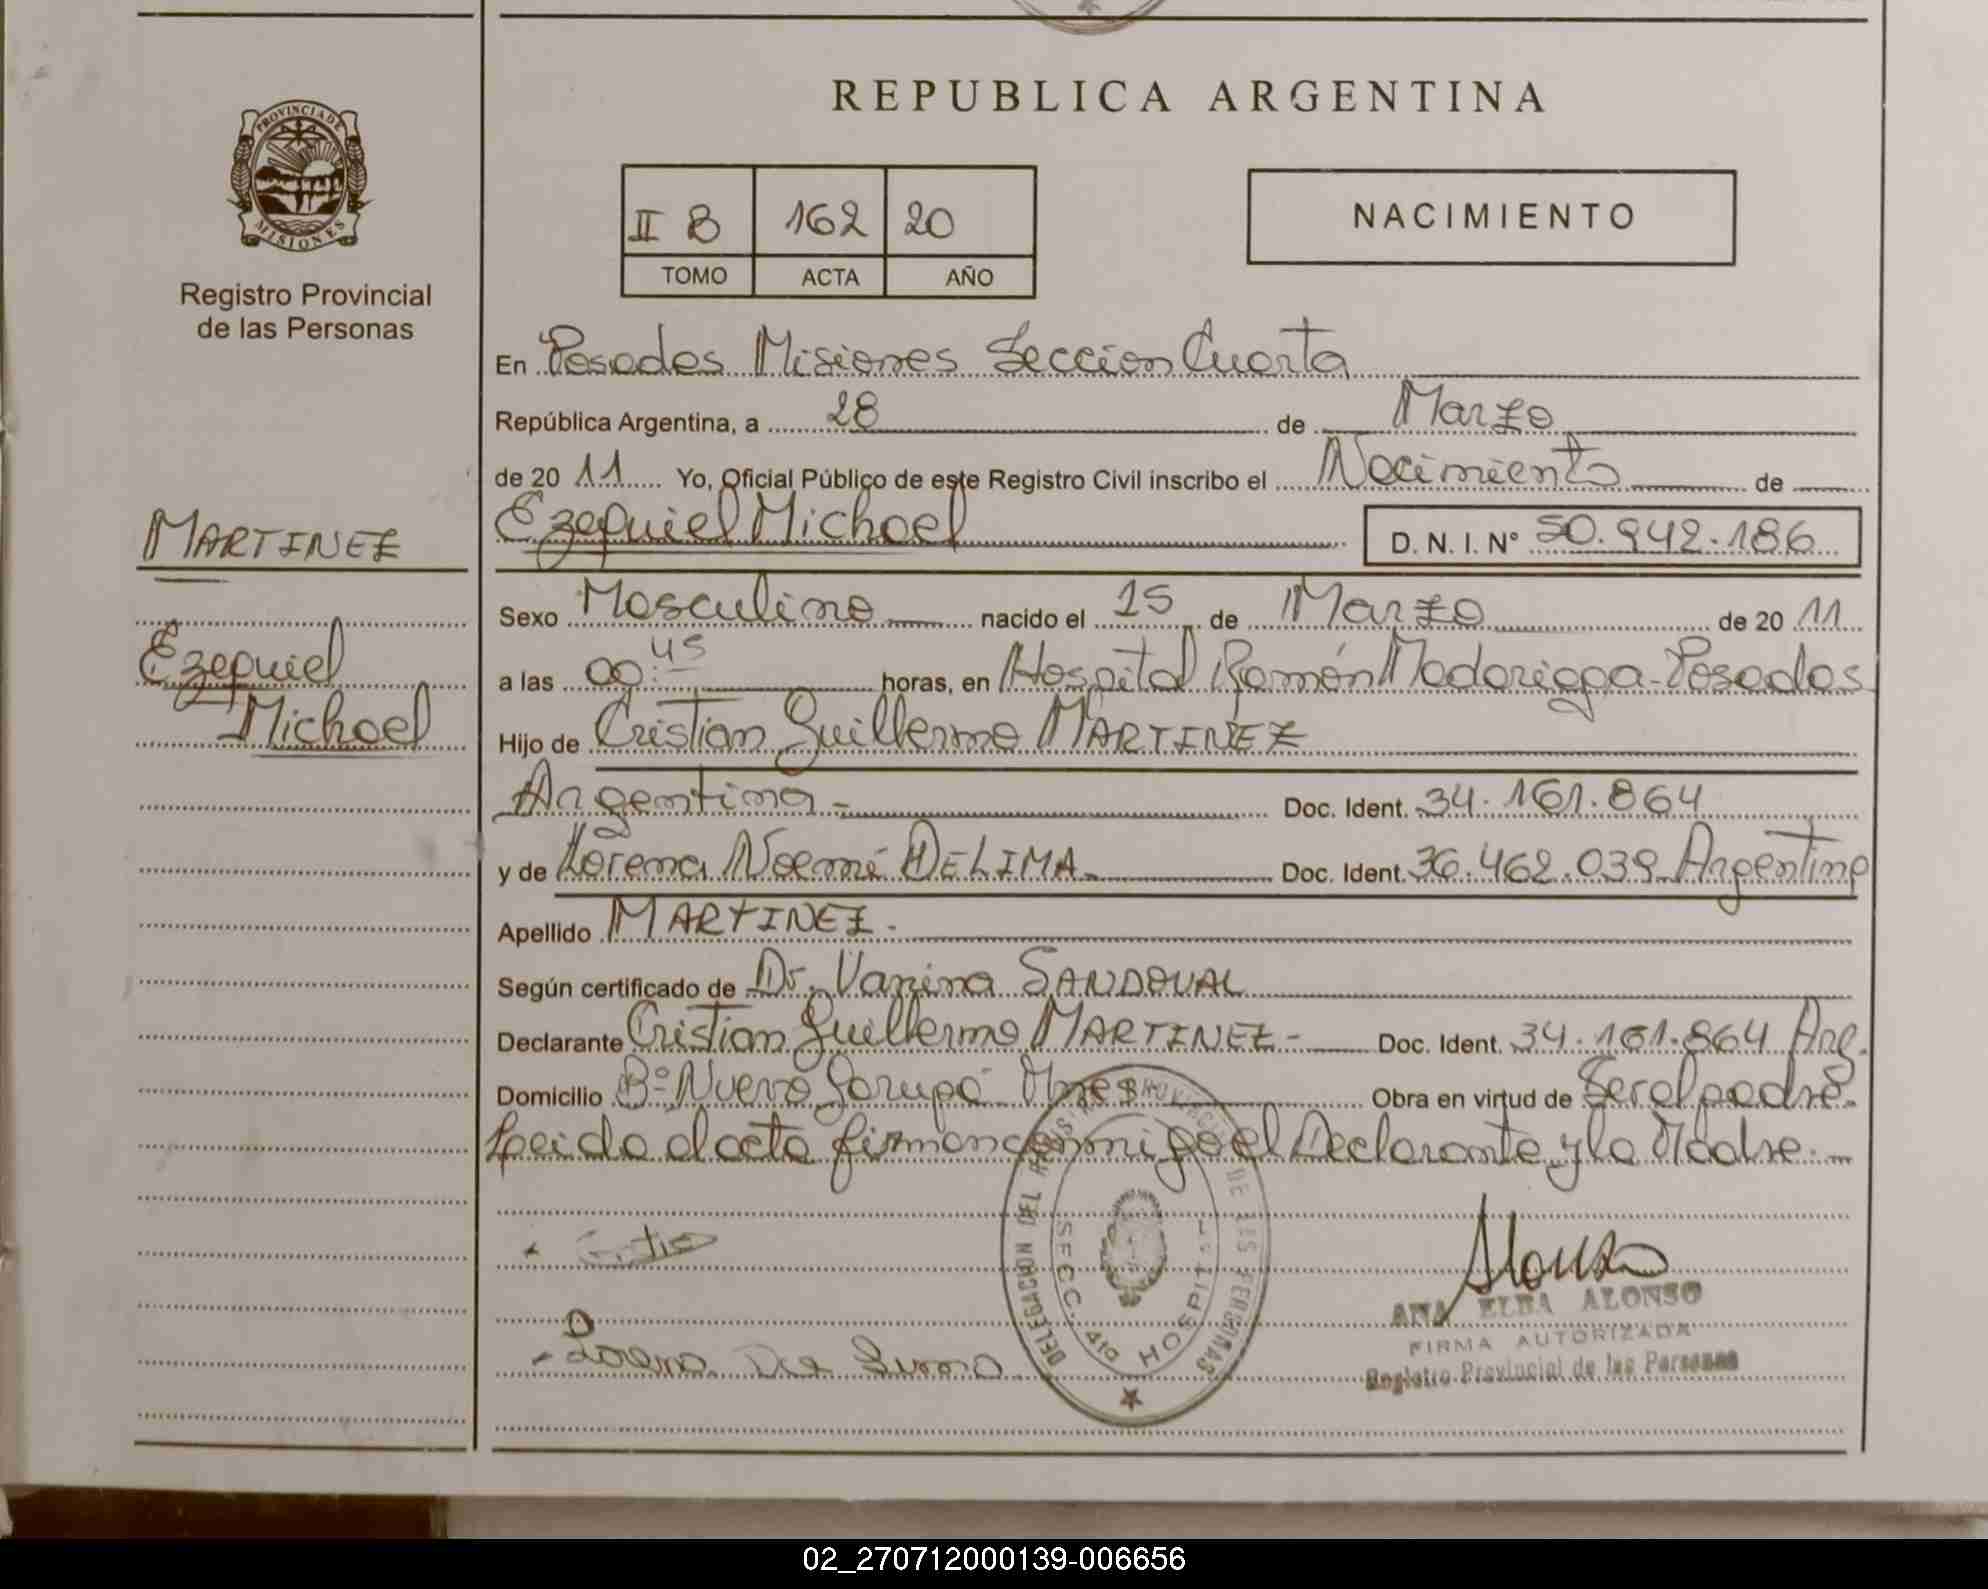 REPUBLICA ARGENTINA
PROVINCIA DE
MISIONES
Registro Provincial
de las Personas
II B 162 20
TOMO ACTA AÑO
NACIMIENTO
En Posadas Misiones Sección Cuarta
República Argentina, a 28 de Marzo
de 2011 Yo, Oficial Público de este Registro Civil inscribo el Nacimiento de
Ezequiel Michael D. N. I. N° 50.942.186
MARTINEZ
Ezequiel
Michael
Sexo Masculino nacido el 15 de Marzo de 2011
a las 00:45 horas, en Hospital Ramón Madariaga - Posadas
Hijo de Cristian Guillermo MARTINEZ
Argentina - Doc. Ident. 34.161.864
y de Lorena Noemí DE LIMA Doc. Ident. 36.462.039 Argentina
Apellido MARTINEZ.
Según certificado de Dr. Vanina SANDOVAL
Declarante Cristian Guillermo MARTINEZ - Doc. Ident. 34.161.864 Arg.
Domicilio B° Nuevo Garupá Mnes Obra en virtud de Ser el padre.
Leida el acta firman conmigo el Declarante y la Madre.
DELEGACION DEL DE LAS PERSONAS
SECC. 4ta HOSPITAL
Alonso
ANA ELBA ALONSO
FIRMA AUTORIZADA
Registro Provincial de las Personas
02_270712000139-006656